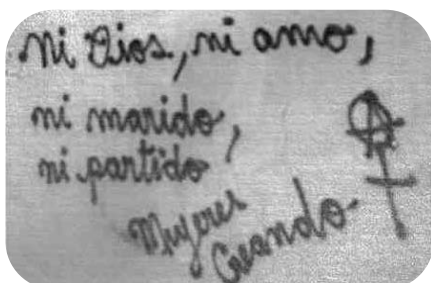 ni Dios, ni amo,
ni marido,
ni partido
Mujeres
Creando